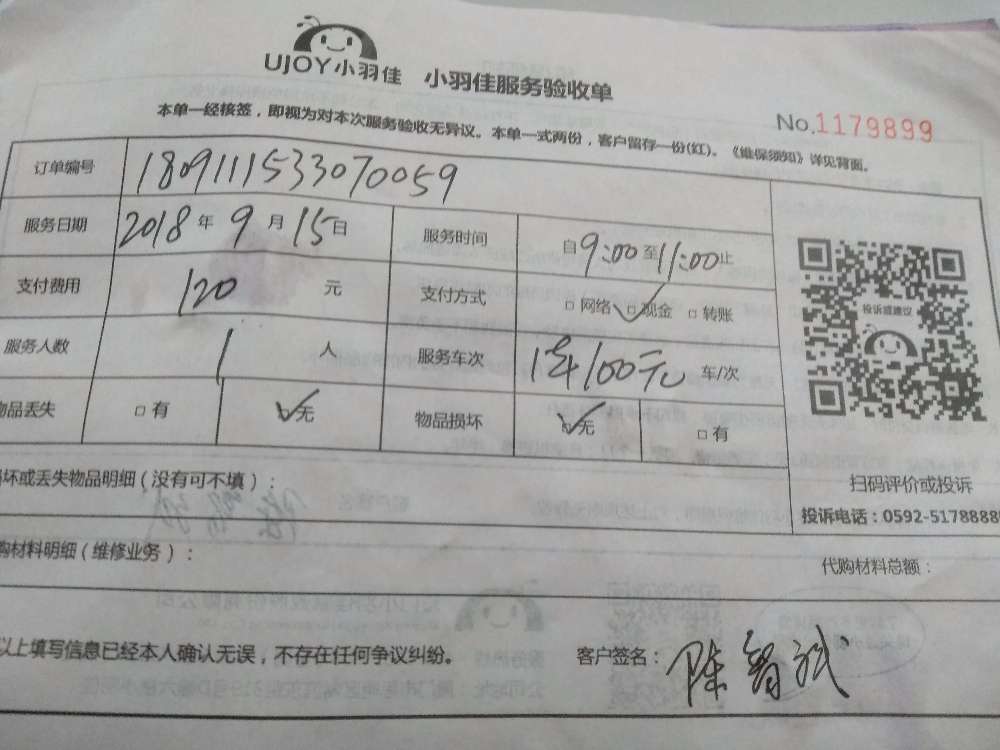 UJOY小羽佳 小羽佳服务验收单
本单一经核签，即视为对本次服务验收无异议。本单一式两份，客户留存一份(红)。《维保须知》详见背面。
No.1179899
订单编号 1809111533070059
服务日期 2018年9月15日 服务时间 自9:00至11:00止
支付费用 120元 支付方式 □网络 ☑现金 □转账
服务人数 1人 服务车次 1车100元 车/次
物品丢失 □有 ☑无 物品损坏 ☑无 □有
投诉或建议
扫码评价或投诉
投诉电话：0592-5178888
损坏或丢失物品明细（没有可不填）：
购材料明细（维修业务）：
代购材料总额：
以上填写信息已经本人确认无误，不存在任何争议纠纷。 客户签名：陈智斌